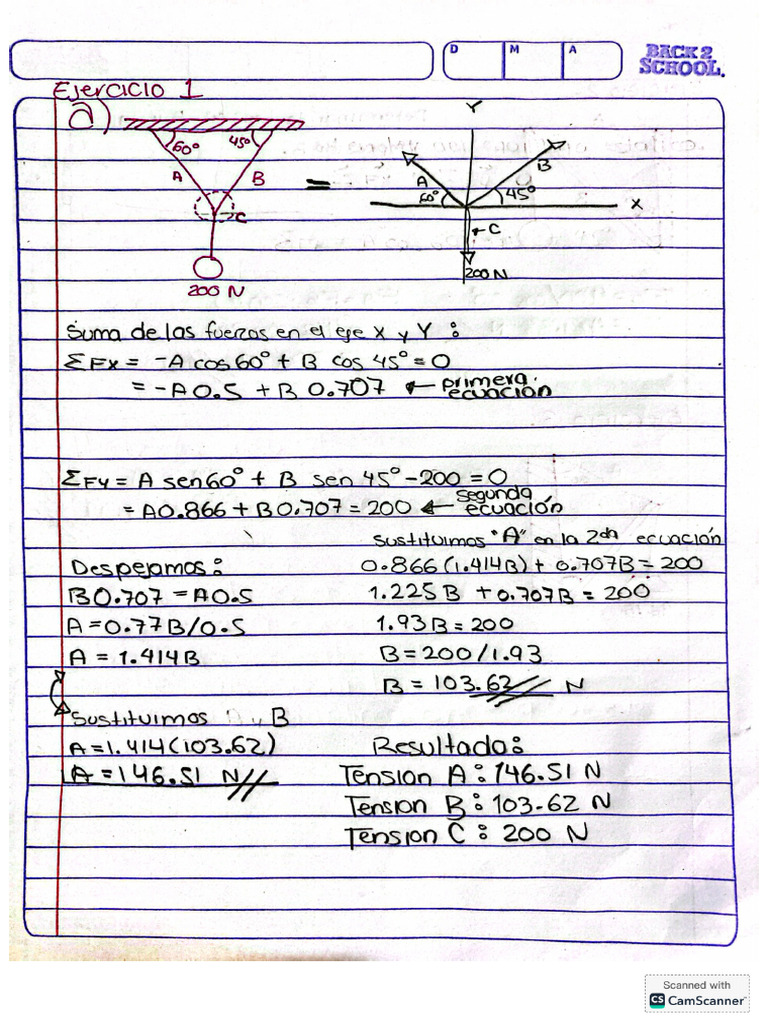 D M A
BACK 2 SCHOOL.
Ejercicio 1
a)
60° 45°
A B
C
200 N
=
Y
A B
60° 45° X
C
200 N
Suma de las fuerzas en el eje X y Y:
ΣFx = -A cos 60° + B cos 45° = 0
= -A0.5 + B 0.707 ← primera ecuación
ΣFy = A sen60° + B sen 45° - 200 = 0
= A0.866 + B0.707 = 200 ← segunda ecuación
Despejamos:
B0.707 = A0.5
A = 0.77B/0.5
A = 1.414B
Sustituimos "A" en la 2da ecuación
0.866(1.414B) + 0.707B = 200
1.225B + 0.707B = 200
1.93B = 200
B = 200/1.93
B = 103.62 N
Sustituimos y B
A = 1.414(103.62)
A = 146.51 N
Resultado:
Tension A: 146.51 N
Tension B: 103.62 N
Tension C: 200 N
Scanned with
CS CamScanner